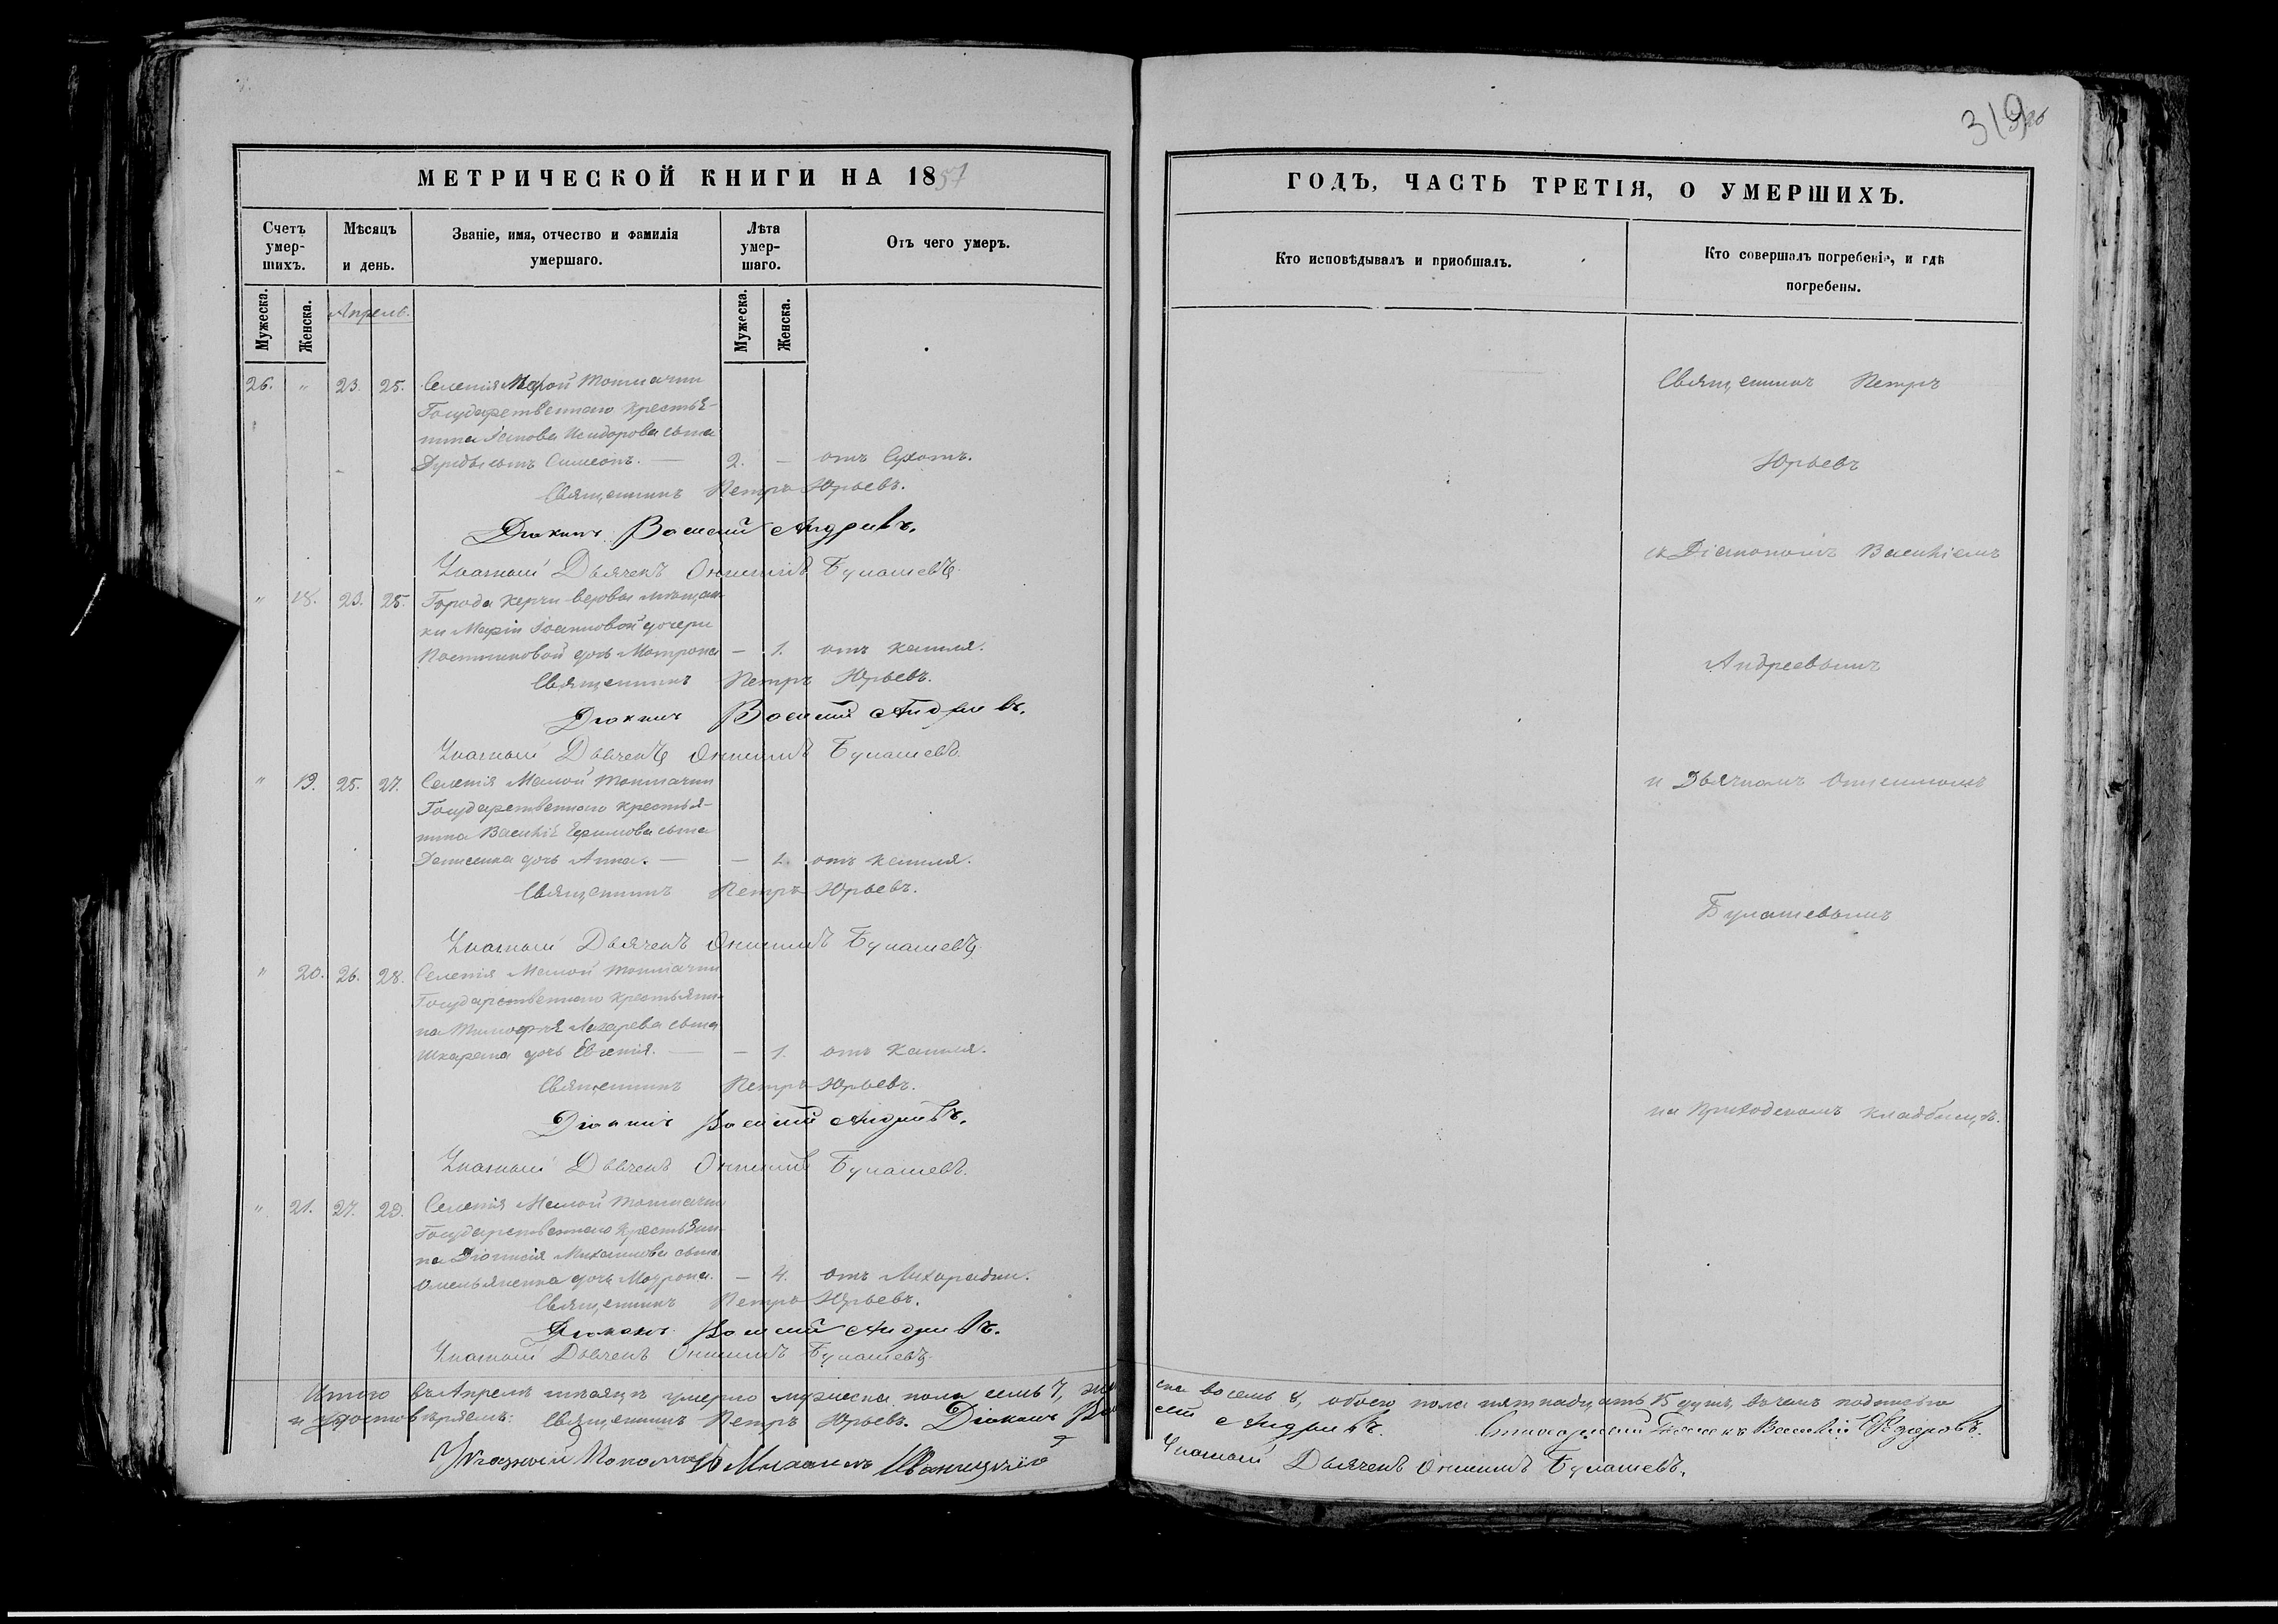 319
МЕТРИЧЕСКОЙ КНИГИ НА 1857
ГОДЪ, ЧАСТЬ ТРЕТІЯ, О УМЕРШИХЪ.
Счетъ умер-шихъ.
Мѣсяцъ и день.
Званіе, имя, отчество и фамилія умершаго.
Лѣта умер-шаго.
Отъ чего умеръ.
Кто исповѣдывалъ и пріобщалъ.
Кто совершалъ погребеніе, и гдѣ погребены.
Мужеска.
Женска.
Апрель.
Мужеска.
Женска.
26. " 23. 25. Селенія Малой Токмачки
Государственнаго крестья-
нина Исидорова сына
сынъ Симеонъ. — 2. — отъ Сухотъ.
Священникъ Петръ Юрьевъ.
Діаконъ Василій Андреевъ.
Указный Дьячекъ Онисимъ Булашевъ.
" 18. 23. 25. Города Керчи вдовы мѣщан-
ки Маріи Іоанновой дочери
дочь Матрона — 1. отъ кашля.
Священникъ Петръ Юрьевъ.
Діаконъ Василій Андреевъ.
Указный Дьячекъ Онисимъ Булашевъ.
" 19. 25. 27. Селенія Малой Токмачки
Государственнаго крестья-
нина Василія Ефимова сына
Денисенка дочь Анна. — — 1. отъ кашля.
Священникъ Петръ Юрьевъ.
Указный Дьячекъ Онисимъ Булашевъ.
" 20. 26. 28. Селенія Малой Токмачки
Государственнаго крестьяни-
на Тимофея Лазарева сына
дочь Евгенія. — — 1. отъ кашля.
Священникъ Петръ Юрьевъ.
Діаконъ Василій Андреевъ.
Указный Дьячекъ Онисимъ Булашевъ.
" 21. 27. 29. Селенія Малой Токмачки
Государственнаго крестьяни-
на Діонисія Михаилова сына
Омельяненка дочь Матрона. — 4. отъ Лихорадки.
Священникъ Петръ Юрьевъ.
Діаконъ Василій Андреевъ.
Указный Дьячекъ Онисимъ Булашевъ.
Священникъ Петръ
Юрьевъ
съ Діакономъ Василіемъ
Андреевымъ
и Дьячкомъ Онисимомъ
Булашевымъ
на приходскомъ кладбищѣ.
Итого въ Апрелѣ мѣсяцѣ умерло мужеска пола семь 7, женска восемь 8, обоего пола пятнадцать 15 душъ, въ чемъ подписью
и удостовѣряемъ: Священникъ Петръ Юрьевъ. Діаконъ Василій Андреевъ. Василій
Указный Пономарь Михаилъ
Указный Дьячекъ Онисимъ Булашевъ.